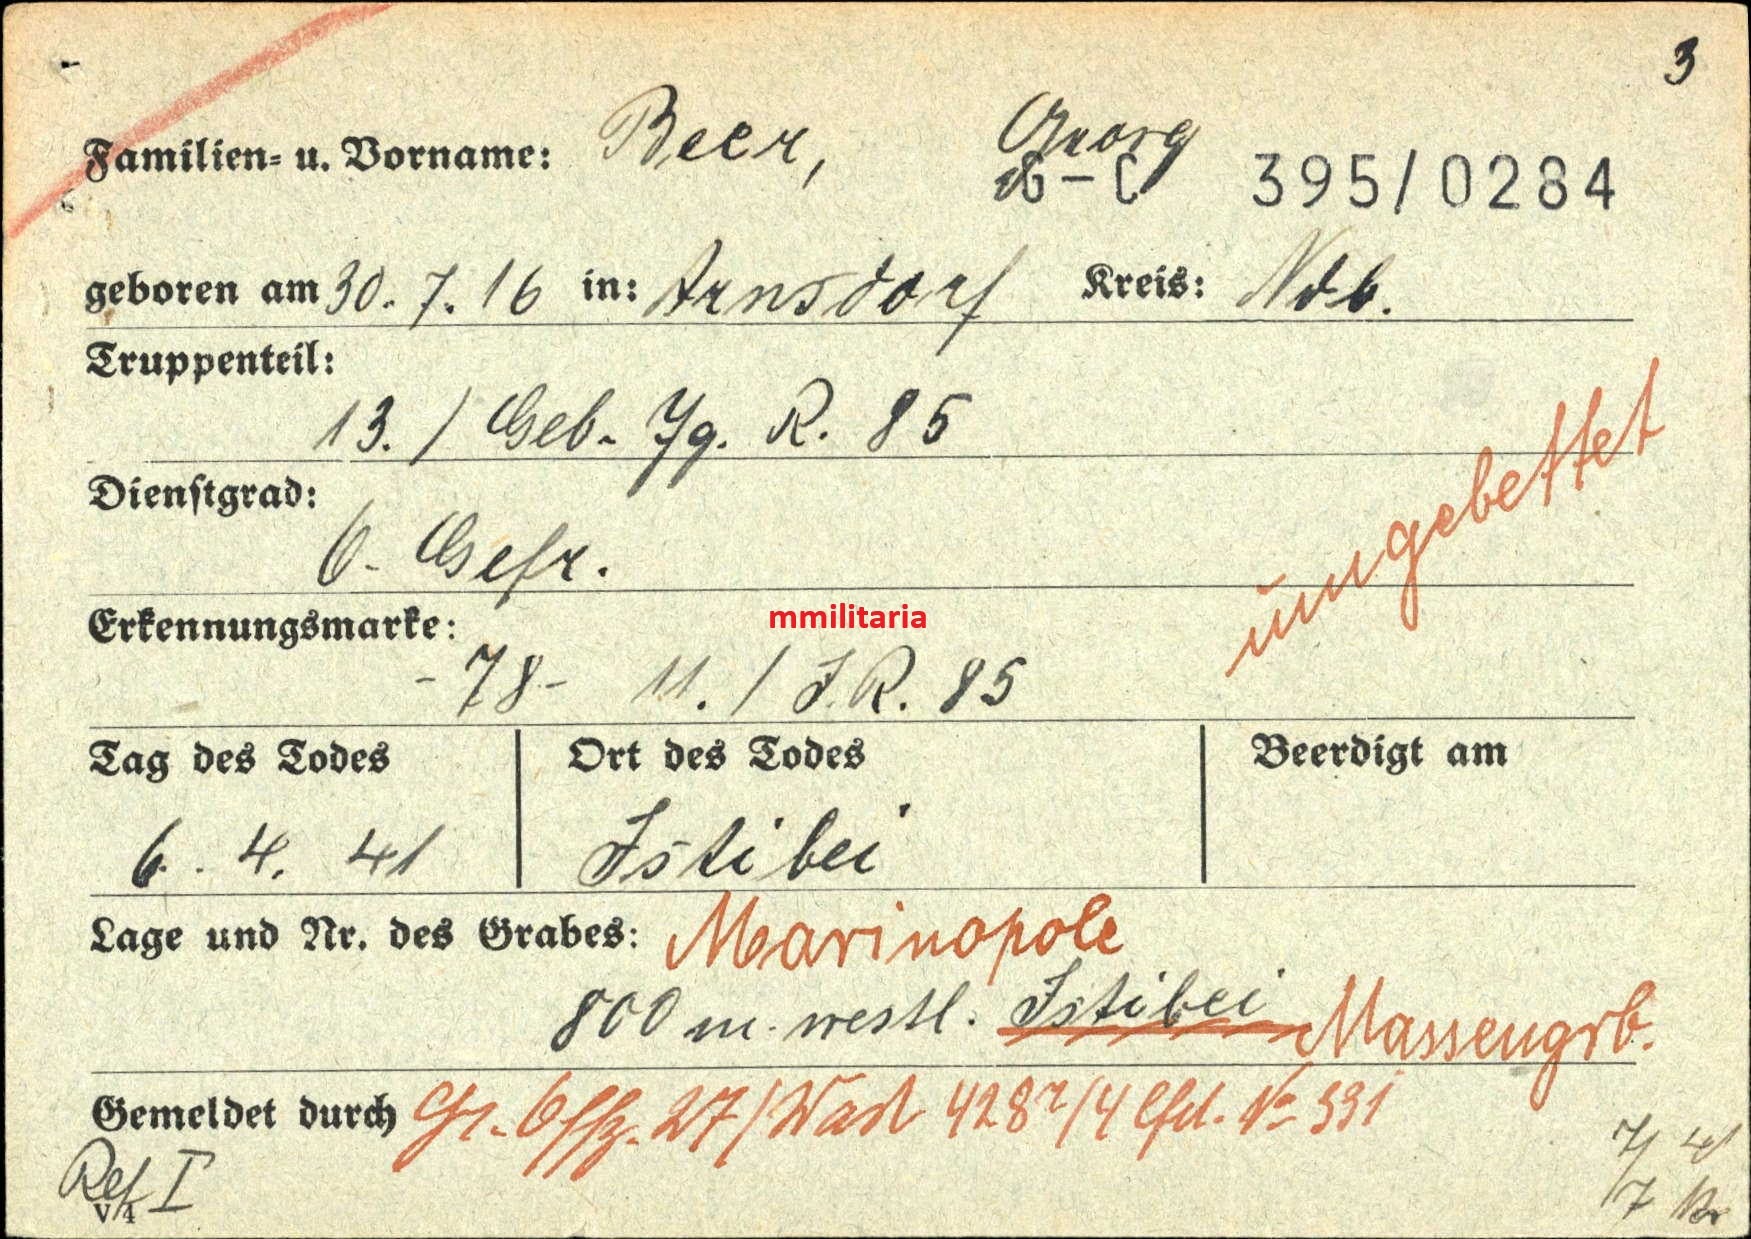 3
Familien= u. Vorname: Beer, Georg
G-C 395/0284
geboren am 30.7.16 in: Arnsdorf Kreis: Ndb.
Truppenteil:
13. / Geb. Jg. R. 85
Dienstgrad:
O. Gefr.
umgebettet
Erkennungsmarke:
mmilitaria
-78- 11. / J.R. 85
Tag des Todes Ort des Todes Beerdigt am
6. 4. 41 Istibei
Lage und Nr. des Grabes: Marinopole
800 m westl. Istibei Massengrb.
Gemeldet durch Gr. Offz. 27/Wast 428 /4 lfd. No 331
Ref I
V/4